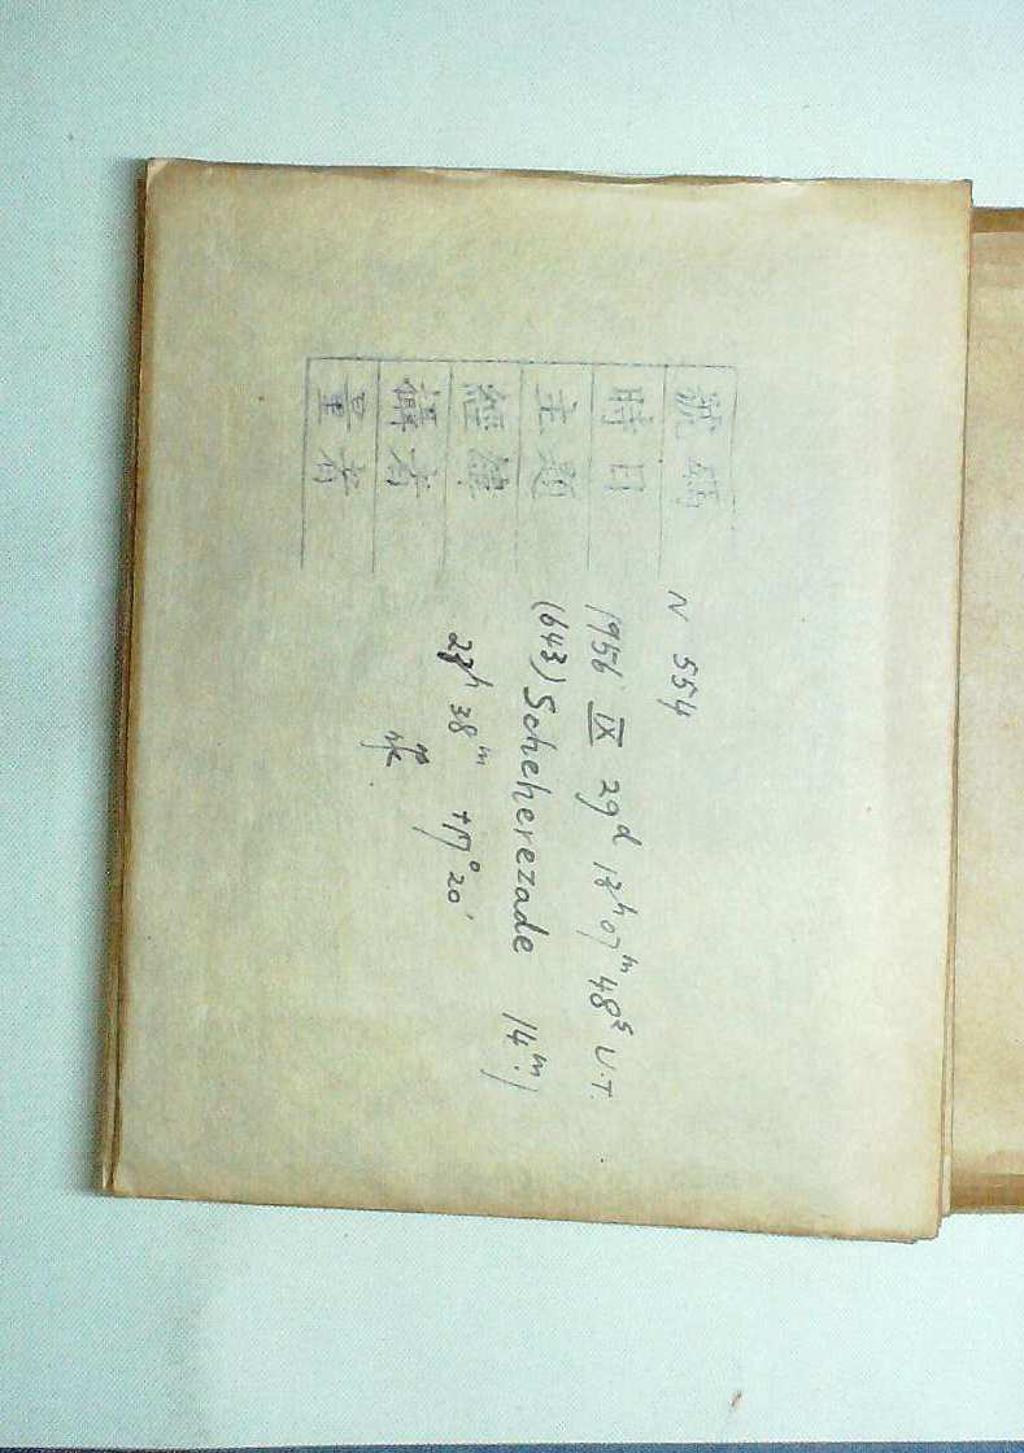 號碼 N 554
時日 1956 IX 29ᵈ 17ʰ 07ᵐ 48ˢ U.T.
主題 (643) Scheherezade 14ᵐ.)
經緯 23ʰ 38ᵐ +17° 20'
攝者
量者